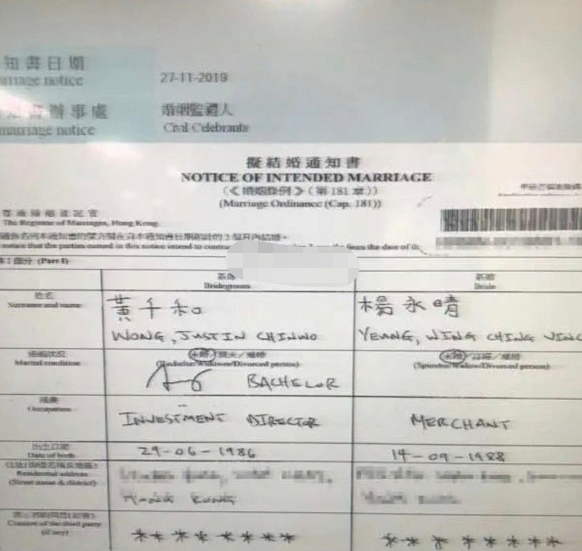 知書日期
rriage notice
27-11-2019
書辦事處
marriage notice
婚姻監禮人
Civil Celebrants
擬結婚通知書
NOTICE OF INTENDED MARRIAGE
(《婚姻條例》(第181章))
(Marriage Ordinance (Cap. 181))
The Registrar of Marriages, Hong Kong.
notice that the parties named in this notice intend to
from the date of
(Part I)
新郎
Bridegroom
新娘
Bride
姓名
Surname and name
黃千和
WONG, JUSTIN CHINWO
楊永晴
YEUNG, WING CHING
婚姻狀況
Marital condition
未婚/鰥夫/離婚
(Bachelor/Widower/Divorced person)
BACHELOR
未婚/寡婦/離婚
(Spinster/Widow/Divorced person)
職業
Occupation
INVESTMENT DIRECTOR
MERCHANT
出生日期
Date of birth
29-06-1986
14-09-1988
Residential address
(Street name & district)
HONG KONG
Consent of the third party
(if any)
********
********